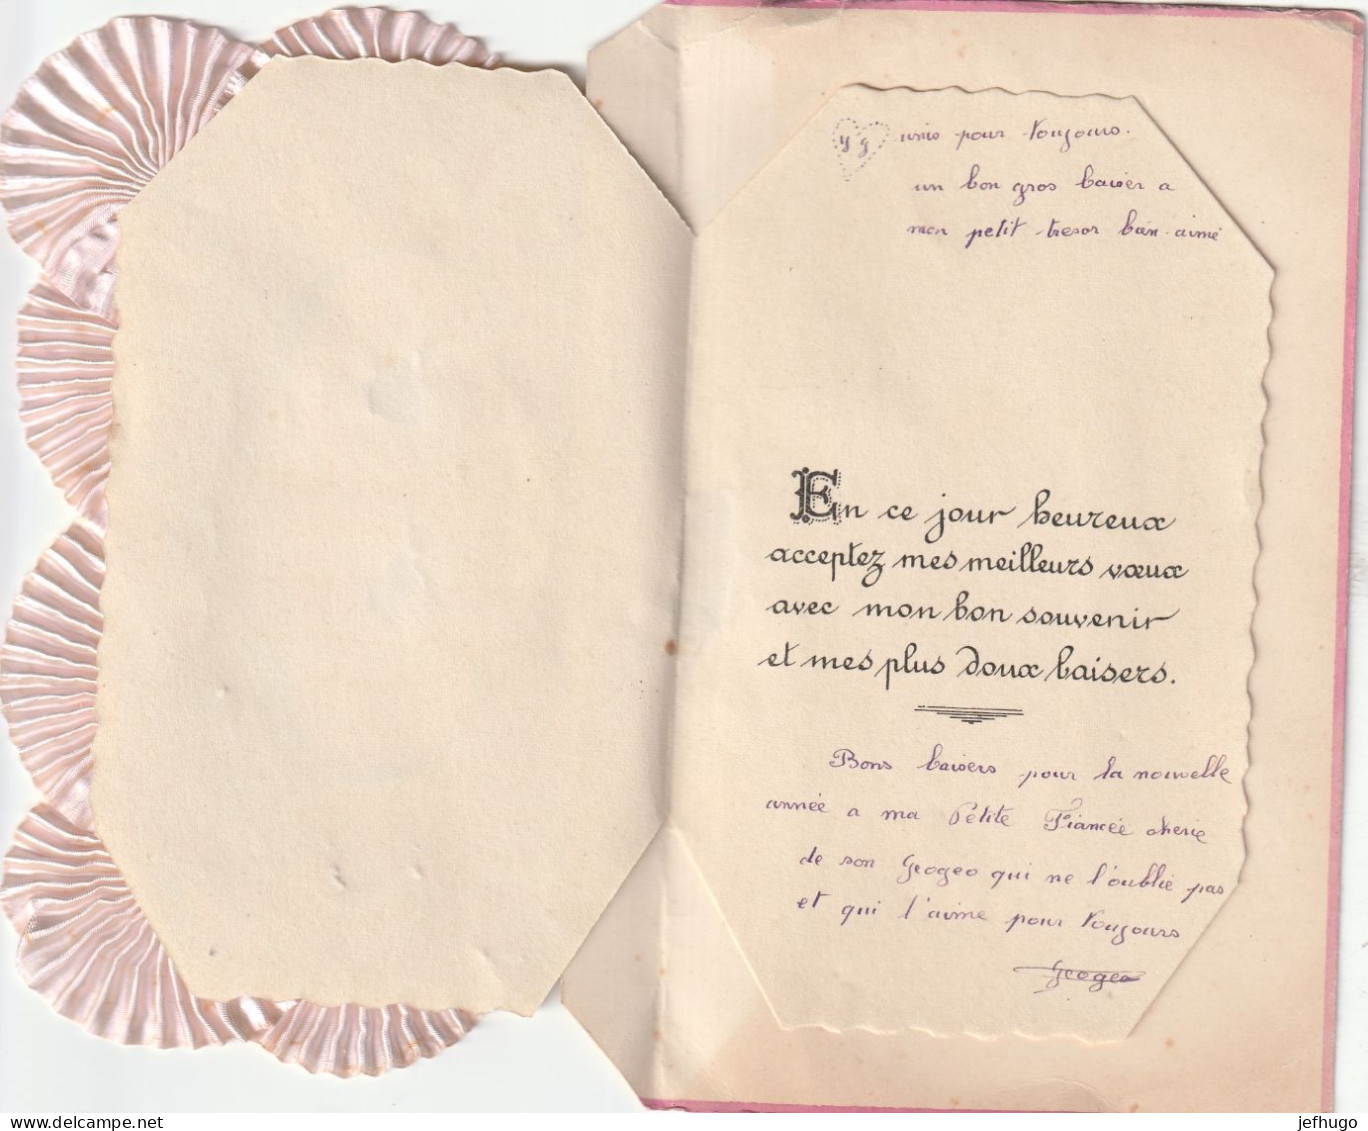 y g unis pour toujours.
un bon gros baiser a
mon petit tresor bien-aimé
En ce jour heureux
acceptez mes meilleurs vœux
avec mon bon souvenir
et mes plus doux baisers.
Bons baisers pour la nouvelle
année a ma Petite Fiancée cherie
de son Geogeo qui ne l'oublie pas
et qui l'aime pour toujours
Geogeo
delcampe.net
jefhugo